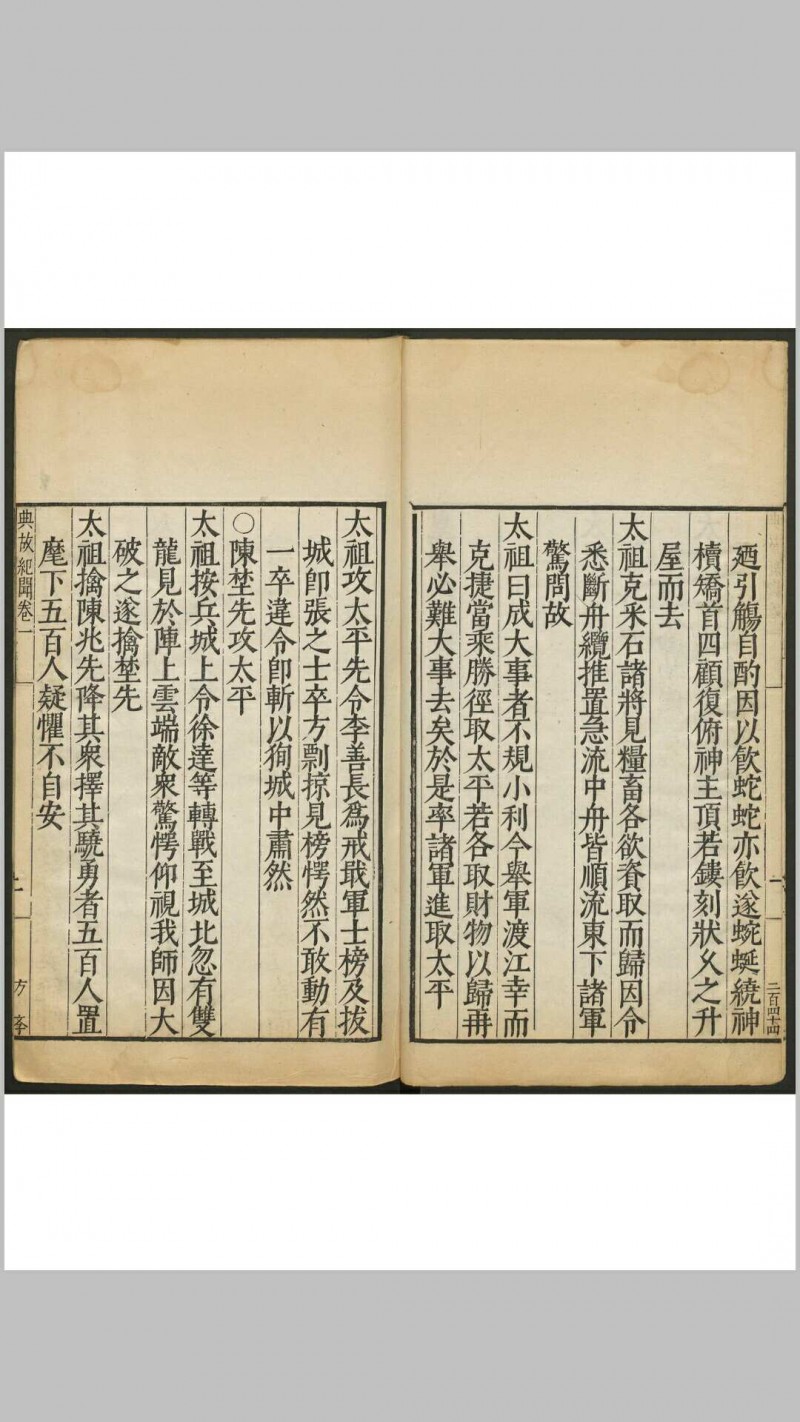 廼引觴自酌因以飲蛇蛇亦飲遂蜿蜒繞神
櫝矯首四顧復俯神主頂若鏤刻狀久之升
屋而去
太祖克采石諸將見糧畜各欲資取而歸因令
悉斷舟纜推置急流中舟皆順流東下諸軍
驚問故
太祖曰成大事者不規小利今舉軍渡江幸而
克捷當乘勝徑取太平若各取財物以歸再
舉必難大事去矣於是率諸軍進取太平
二百四十四
太祖攻太平先令李善長為戒戢軍士榜及拔
城即張之士卒方剽掠見榜愕然不敢動有
一卒違令即斬以狥城中肅然
○陳埜先攻太平
太祖按兵城上令徐達等轉戰至城北忽有雙
龍見於陣上雲端敵衆驚愕仰視我師因大
破之遂擒埜先
太祖擒陳兆先降其衆擇其驍勇者五百人置
麾下五百人疑懼不自安
典故紀聞卷一